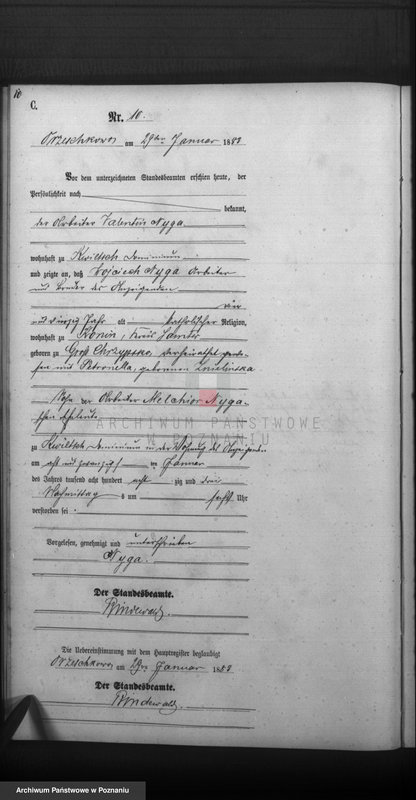 10
C.
Nr. 10.
Orzeschkowo am 29ten Januar 1883
Vor dem unterzeichneten Standesbeamten erschien heute, der
Persönlichkeit nach
bekannt,
der Arbeiter Valentin Nyga
wohnhaft zu Kwiltsch Dominium
und zeigte an, daß Wojciech Nyga Arbeiter
und Bruder des Anzeigenden
vier
und vierzig Jahr alt katholischer Religion,
wohnhaft zu Konin, Kreis Samter
geboren zu Groß Chrzypsko, verheirathet
und Petronella, geborenen
Sohn der Arbeiter Melchior Nyga
schen Eheleute
zu Kwiltsch, Dominium in der Wohnung des Anzeigenden
am acht und zwanzigsten Januar
des Jahres tausend acht hundert achtzig und drei
Nachmittag um sechs Uhr
verstorben sei
Vorgelesen, genehmigt und unterschrieben
Nyga.
Der Standesbeamte.
Die Uebereinstimmung mit dem Hauptregister beglaubigt
Orzeschkowo am 29ten Januar 1883
Der Standesbeamte.
ARCHIWUM PAŃSTWOWE
W POZNANIU
Archiwum Państwowe w Poznaniu